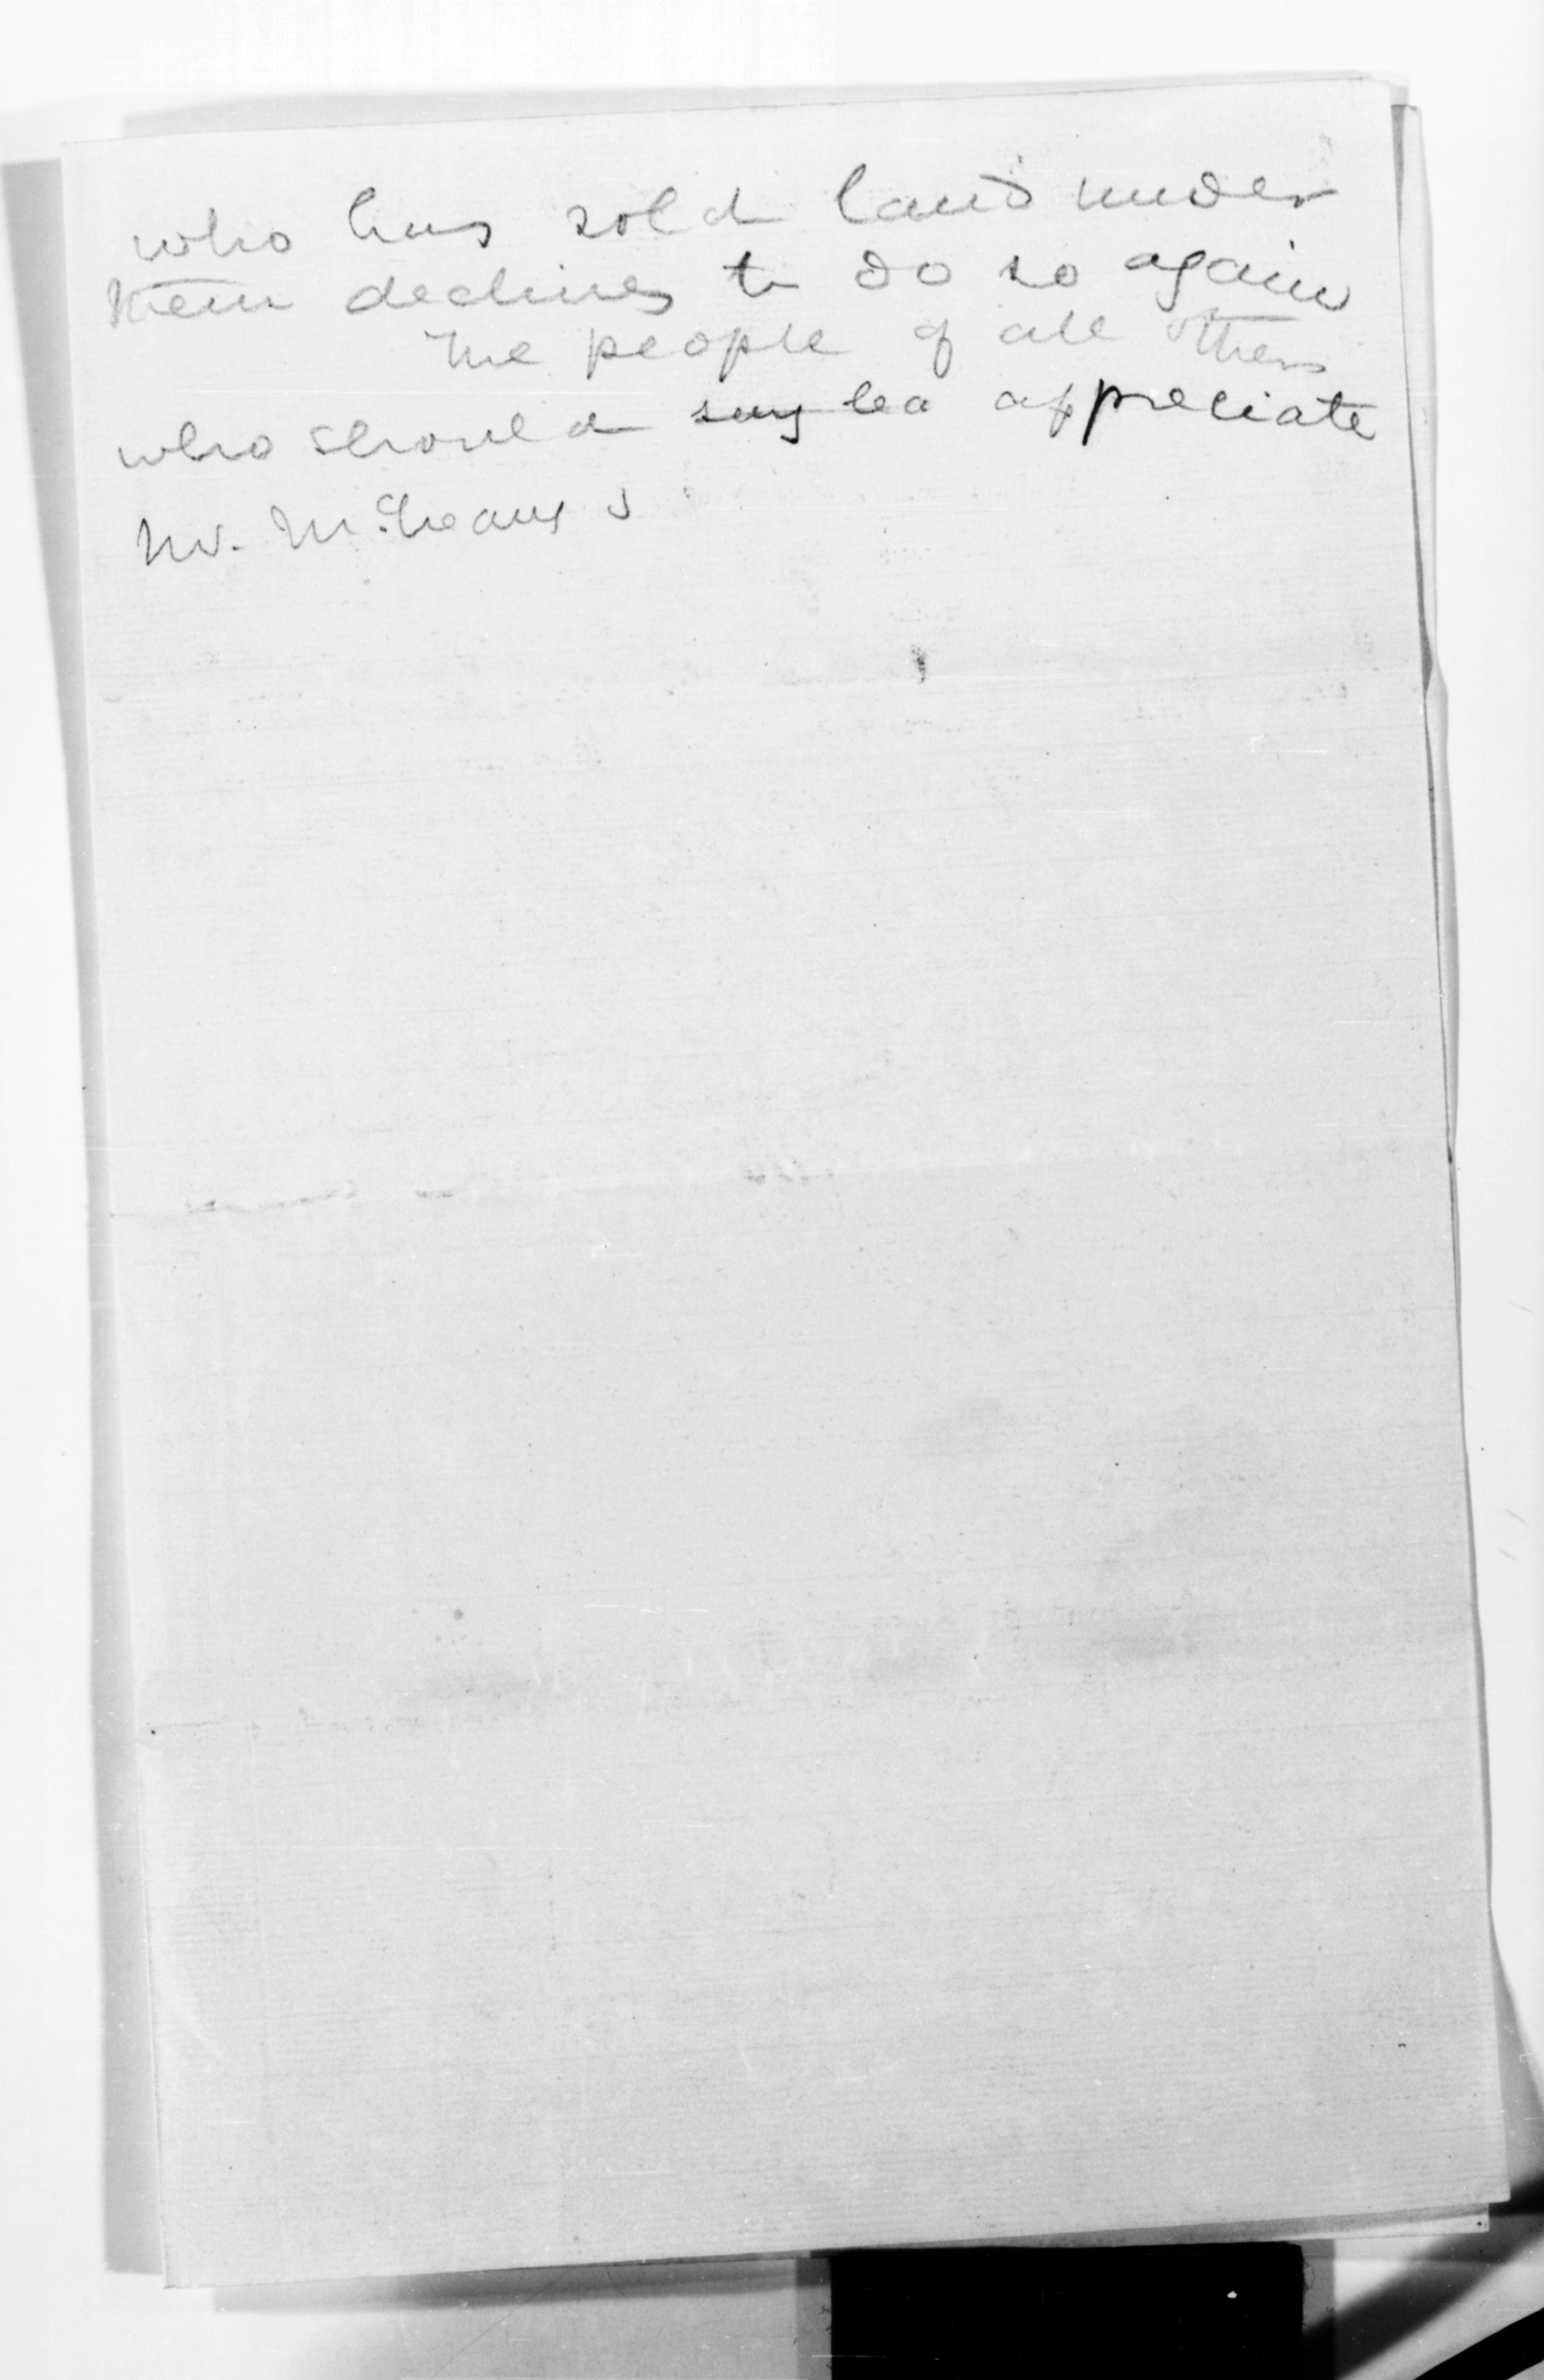 who has sold land under
them declines to do so again
The people of all others
who should appreciate
Mr.